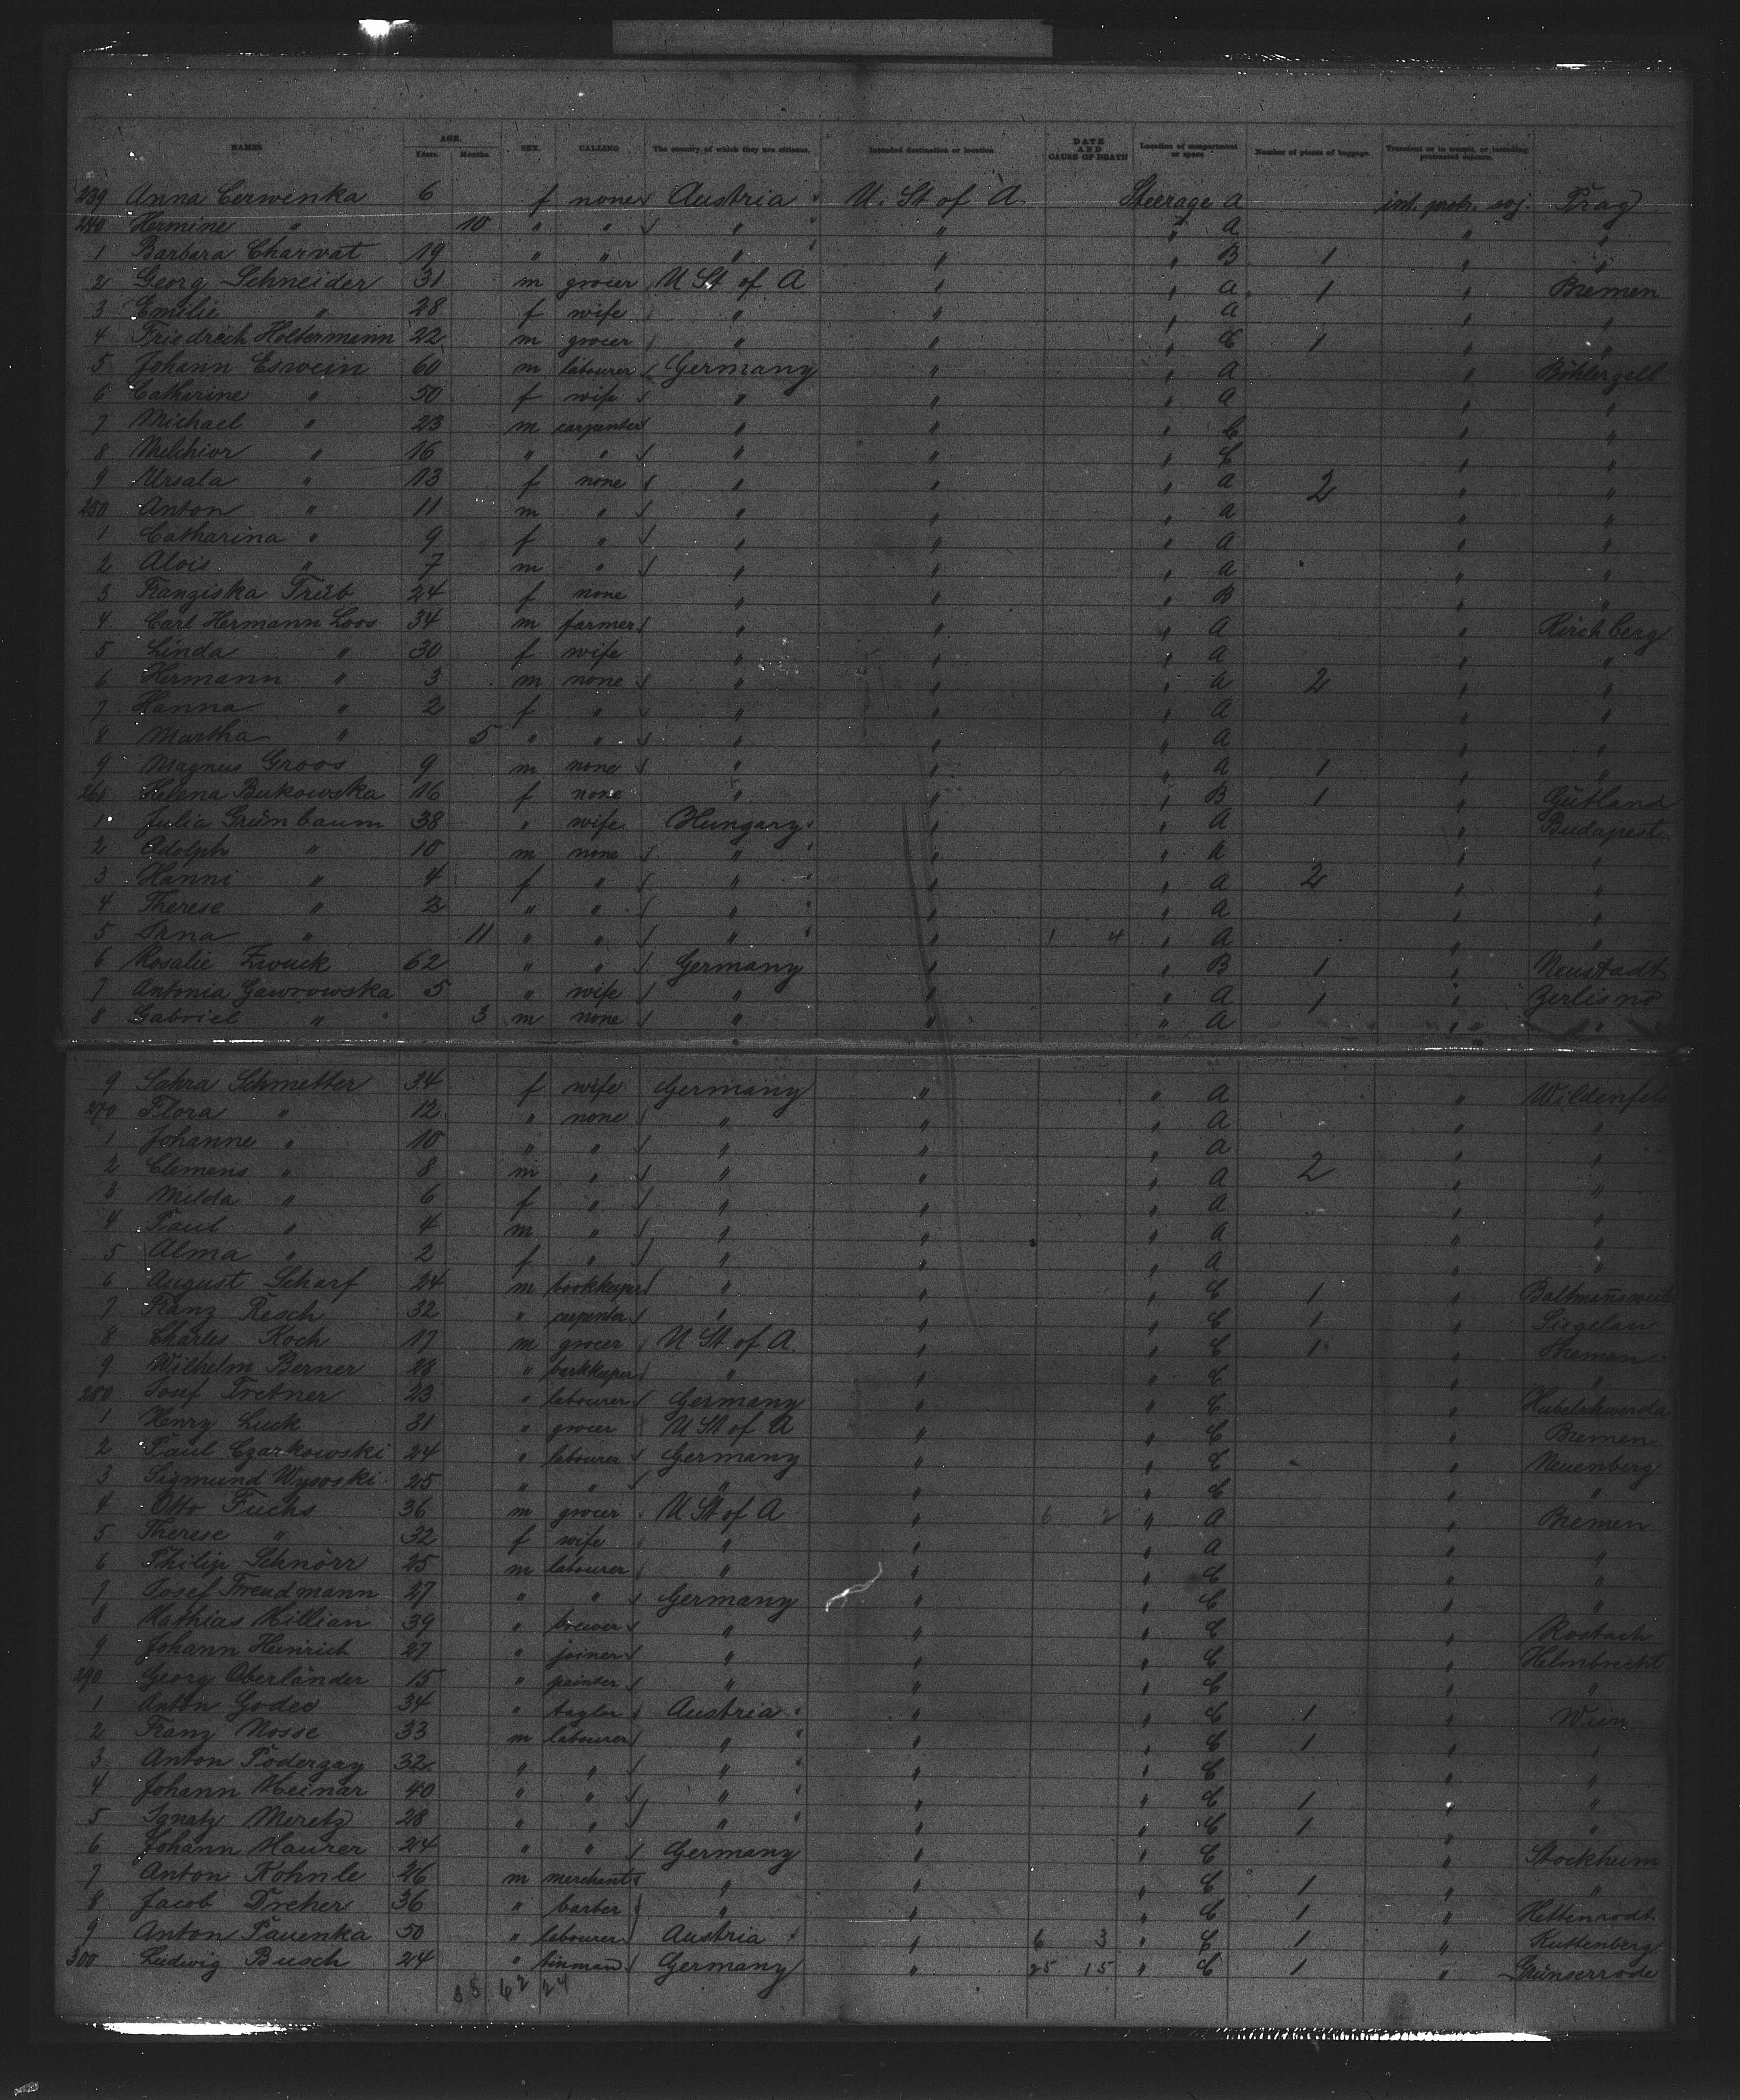 NAMES AGE. Years. Months. SEX. CALLING The country of which they are citizens. Intended destination or location DATE AND CAUSE OF DEATH Location of compartment or space Number of pieces of baggage. Transient or in transit, or intending protracted sojourn.
239 Anna Cerwenka 6 f none Austria U. St of A. Steerage A int. protr. soj. Prag
240 Hermine " 10 " " " " " A " "
1 Barbara Charvat 19 " " " " " B 1 " "
2 Georg Schneider 31 m grocer U St of A " " A 1 " Bremen
3 Emilie " 28 f wife " " " A " "
4 Friedrich Holtermann 22 m grocer " " " C 1 " "
5 Johann Eswein 60 m labourer Germany " " A "
6 Catharine " 50 f wife " " " A " "
7 Michael " 23 m carpenter " " " C " "
8 Melchior " 16 " " " " " C " "
9 Ursala " 13 f none " " " A 2 " "
250 Anton " 11 m " " " " A " "
1 Catharina " 9 f " " " " A " "
2 Alois " 7 m " " " " A " "
3 Franziska Trüb 24 f none " " " B " "
4 Carl Hermann Loos 34 m farmer " " " A " Kirchberg
5 Linda " 30 f wife " " " A " "
6 Hermann " 3 m none " " " A 2 " "
7 Hanna " 2 f " " " " A " "
8 Martha " 5 " " " " " A " "
9 Magnus Groos 9 m none " " " A 1 " "
260 Helena Bukowska 16 f none " " " B 1 " Gütland
1 Julia Grünbaum 38 " wife Hungary " " A " Budapest
2 Adolph " 10 m none " " " A " "
3 Hanni " 4 f " " " " A 2 " "
4 Therese " 2 " " " " " A " "
5 Irna " 11 " " " " 1 4 " A " "
6 Rosalie Zwuck 62 " " Germany " " B 1 " Neustadt
7 Antonia Gawrowska 5 " wife " " " A 1 "
8 Gabriel " 3 m none " " " A " "
9 Sahra Schmetter 34 f wife Germany " " A " Wildenfels
270 Flora " 12 " none " " " A " "
1 Johanne " 10 " " " " " A " "
2 Clemens " 8 m " " " " A 2 " "
3 Milda " 6 f " " " " A " "
4 Paul " 4 m " " " " A " "
5 Alma " 2 f " " " " A " "
6 August Scharf 24 m bookkeeper " " " C 1 "
7 Franz Resch 32 " carpenter " " " C 1 " Siegelau
8 Charles Koch 17 m grocer U St of A. " " C 1 " Bremen
9 Wilhelm Berner 28 " barkkeeper " " " C " "
280 Josef Tretner 23 " labourer Germany " " C " Habelschwerda
1 Henry Luck 31 " grocer U St of A " " C " Bremen
2 Paul Czarkowski 24 " labourer Germany " " C " Neuenberg
3 Sigmund Wysoski 25 " " " " " C " "
4 Otto Fuchs 36 m grocer U St of A " 6 2 " A " Bremen
5 Therese " 32 f wife " " " A " "
6 Philip Schnörr 25 m labourer " " " C " "
7 Josef Freudmann 27 " " Germany " " C " "
8 Mathias Killian 39 " brewer " " " C " Rosbach
9 Johann Heinrich 27 " joiner " " " C " Helmbrecht
290 Georg Oberländer 15 " painter " " " C " "
1 Anton Godec 34 " taylor Austria " " C 1 " Wien
2 Franz Nosse 33 m labourer " " " C 1 " "
3 Anton Podergay 32 " " " " " C " "
4 Johann Meinar 40 " " " " " C 1 " "
5 Ignatz Meretz 28 " " " " " C 1 " "
6 Johann Maurer 24 " " Germany " " C " Stockheim
7 Anton Kohnle 26 m merchant " " " C 1 " "
8 Jacob Dreher 36 " barber " " " C 1 " Hettenrodt
9 Anton Pauenka 50 " labourer Austria " 6 3 " C 1 " Kuttenberg
300 Ludwig Busch 24 " tinman Germany " 25 15 " C 1 "
38 62 24